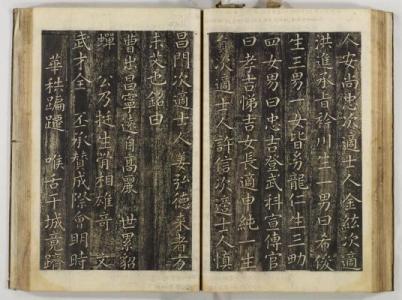 人女尚忠次適士人金絃次適
洪進承百齡川生一男曰希俊
生三男一女皆幼龍仁生三男
四女男曰忠吉登武科宣傳官
曰孝吉悌吉女長適申純一生
次適士人許信次適士人愼
昌門次適士人姜弘德來者方
未艾也銘曰
曹出昌寧遠自高麗 世累貂
蟬 公乃挺生骨相雄奇 文
武才全 丕承贊成際會明時
華秩蹁躚 唯古干城竟躋